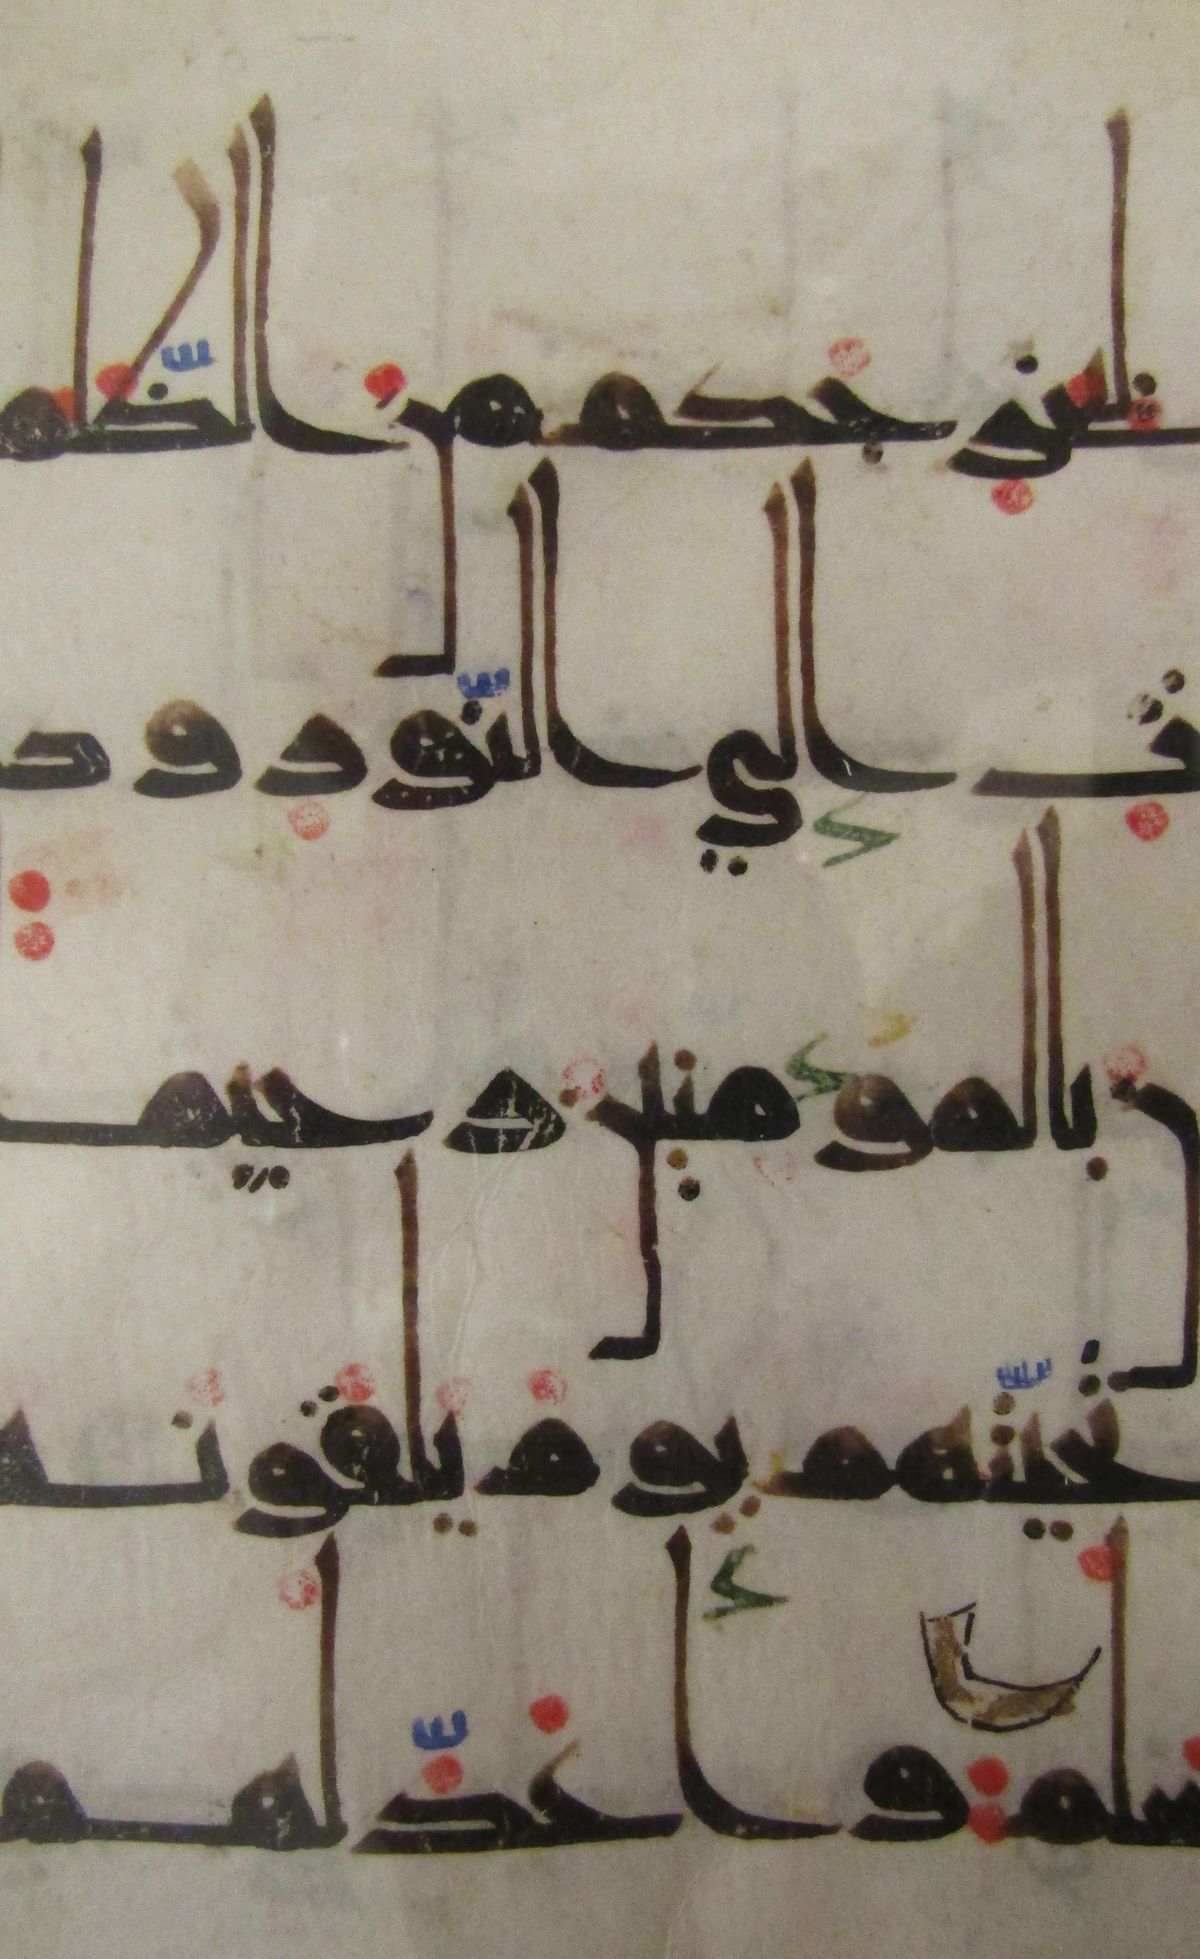 ليخرجكم من الظلم
ت الى النور وكـ
ن بالمومنين رحيمـ
تحيتهم يوم يلقونه
سلم واعد لهم